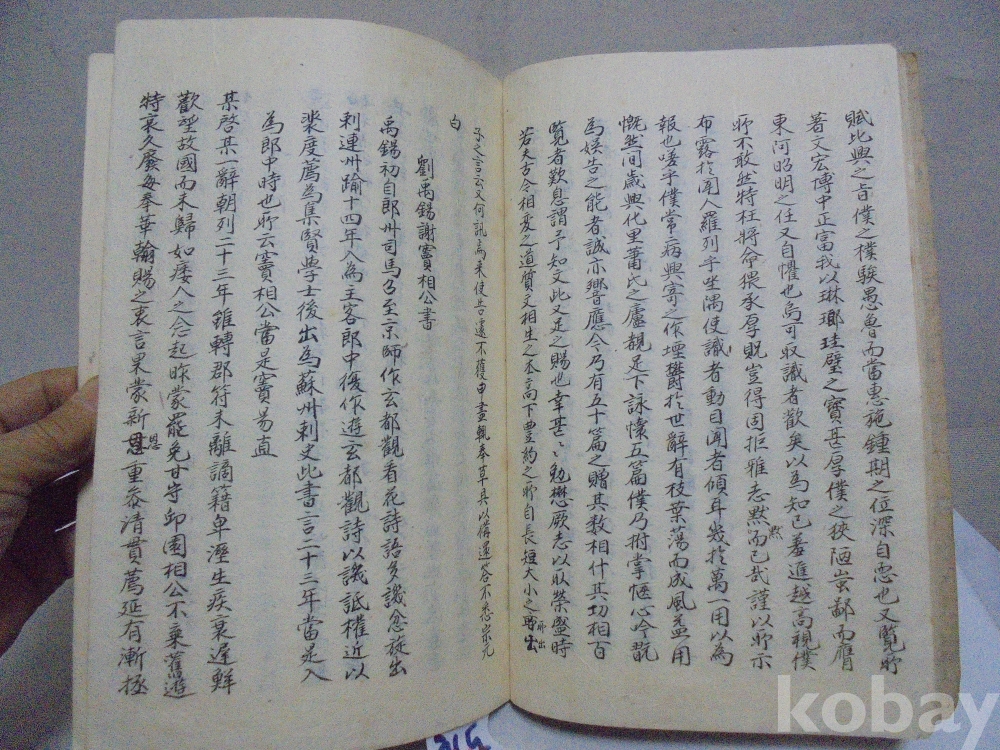 賦比興之旨僕之樸騃愚魯而當惠施鍾期之位深自恧也又覽所
著文宏博中正富我以琳瑯珪璧之寶甚厚僕之狹陋蚩鄙而膺
東阿昭明之任又自懼也烏可取識者歡笑以為知己羞進越高視僕
所不敢然特枉將命猥承厚貺豈得固拒雅志默而已哉謹以所示
默
布露於聞人羅列乎坐隅使識者動目聞者傾耳幾於萬一用以為
報也嗟乎僕常病興寄之作堙鬱於世辭有枝葉蕩而成風益用
慨然間歲興化里蕭氏之廬覩足下詠懷五篇僕乃拊掌愜心吟翫
為娛告之能者誠亦響應今乃有五十篇之贈其數相什其功相百
覽者歎息謂予知文此又足下之賜也幸甚幸甚勉懋厥志以取榮盛時
若夫古今相變之道質文相生之本高下豐約之所自長短大小之所出
子之言云又何訊焉來使告遽不獲申盡輒奉草具以備還答不悉宗元
白
劉禹錫謝竇相公書
禹錫初自郎州司馬乃至京師作玄都觀看花詩語多譏忿放出
刺連州踰十四年入為主客郎中後作遊玄都觀詩以譏詆權近以
裴度薦為集賢學士後出為蘇州刺史此書言二十三年當是入
為郎中時也所云竇相公當是竇易直
某啓某一辭朝列二十三年雖轉郡符未離謫籍卑溼生疾衰遲鮮
歡望故國而未歸如痿人之念起昨蒙罷免甘守卯園相公不棄舊遊
特哀久廢每奉華翰賜之衷言果蒙新恩重忝清貫薦延有漸拯
恩
kobay